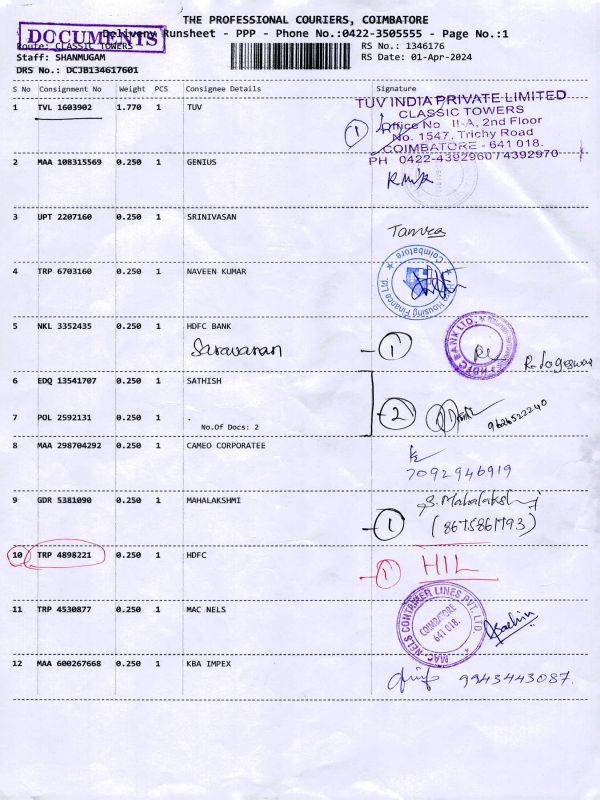 THE PROFESSIONAL COURIERS, COIMBATORE
DOCUMENTS
Delivery Runsheet - PPP - Phone No.:0422-3505555 - Page No.:1
Route: CLASSIC TOWERS
RS No.: 1346176
Staff: SHANMUGAM
RS Date: 01-Apr-2024
DRS No.: DCJB134617601
S No Consignment No Weight PCS Consignee Details Signature
1 TVL 1603902 1.770 1 TUV
TUV INDIA PRIVATE LIMITED
CLASSIC TOWERS
Office No II-A, 2nd Floor
No. 1547, Trichy Road
COIMBATORE - 641 018.
PH 0422-4392960 / 4392970
1
2 MAA 108315569 0.250 1 GENIUS
3 UPT 2207160 0.250 1 SRINIVASAN
4 TRP 6703160 0.250 1 NAVEEN KUMAR
Housing Finance Ltd. Coimbatore
5 NKL 3352435 0.250 1 HDFC BANK
Saravanan
1
HDFC BANK LTD.
R. Logeswar
6 EDQ 13541707 0.250 1 SATHISH
7 POL 2592131 0.250 1 .
No.Of Docs: 2
2
9626522240
8 MAA 298704292 0.250 1 CAMEO CORPORATEE
7092946919
9 GDR 5381090 0.250 1 MAHALAKSHMI
S. Mahalakshmi
1
(8675861793)
10 TRP 4898221 0.250 1 HDFC
1
HIL
11 TRP 4530877 0.250 1 MAC NELS
MAC-NELS CONTAINER LINES PVT. LTD.
COIMBATORE
641 018.
Sachin
12 MAA 600267668 0.250 1 KBA IMPEX
9943443087.